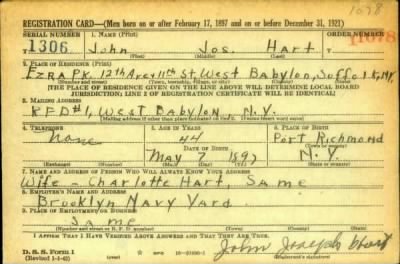 1078
REGISTRATION CARD—(Men born on or after February 17, 1897 and on or before December 31, 1921)
SERIAL NUMBER 1. NAME (Print) ORDER NUMBER
1306 John Jos. Hart 11078
2. PLACE OF RESIDENCE (Print)
Ezra Pk. 12th Ave & 11th St, West Babylon, Suffolk, N.Y.
(Number and street) (Town, township, village, or city) (County) (State)
[THE PLACE OF RESIDENCE GIVEN ON THE LINE ABOVE WILL DETERMINE LOCAL BOARD
JURISDICTION; LINE 2 OF REGISTRATION CERTIFICATE WILL BE IDENTICAL]
3. MAILING ADDRESS
RFD #1, West Babylon N.Y.
[Mailing address if other than place indicated on line 2. If same insert word same]
4. TELEPHONE 5. AGE IN YEARS 6. PLACE OF BIRTH
None 44 Port Richmond
DATE OF BIRTH (Town or county)
May 7 1897 N.Y.
(Exchange) (Number) (Mo.) (Day) (Yr.) (State or country)
7. NAME AND ADDRESS OF PERSON WHO WILL ALWAYS KNOW YOUR ADDRESS
Wife - Charlotte Hart, Same
8. EMPLOYER'S NAME AND ADDRESS
Brooklyn Navy Yard
9. PLACE OF EMPLOYMENT OR BUSINESS
Same
(Number and street or R. F. D. number) (Town) (County) (State)
I AFFIRM THAT I HAVE VERIFIED ABOVE ANSWERS AND THAT THEY ARE TRUE.
D. S. S. Form 1
(Revised 1-1-42) (over)
John Joseph Hart
(Registrant's signature)